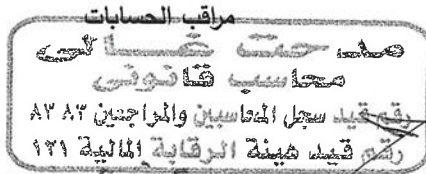 مراقب الحسابات
مدحت غالى
محاسب قانونى
رقم قيد سجل المحاسبين والمراجعين ٨٣٨٣
رقم قيد هيئة الرقابة المالية ١٣١